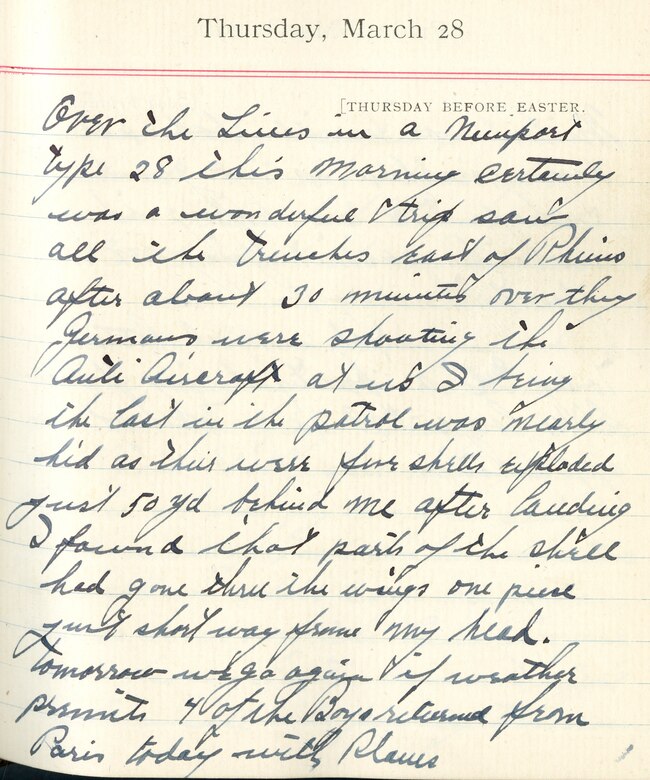 Thursday, March 28
[THURSDAY BEFORE EASTER.
Over the Lines in a Neuport
type 28 this morning certenly
was a wonderful trip saw
all the trenches east of Rhims
after about 30 minutes over they
Germans were shooting the
Anti Aircraft at us I being
the last in the patrol was nearly
hid as their were five shells exploded
just 50 yd behind me after landing
I found that parts of the shell
had gone thru the wings one piese
just short way frome my head.
tomorrow we go again if weather
permits 4 of the Boys returned from
Paris today with Planes